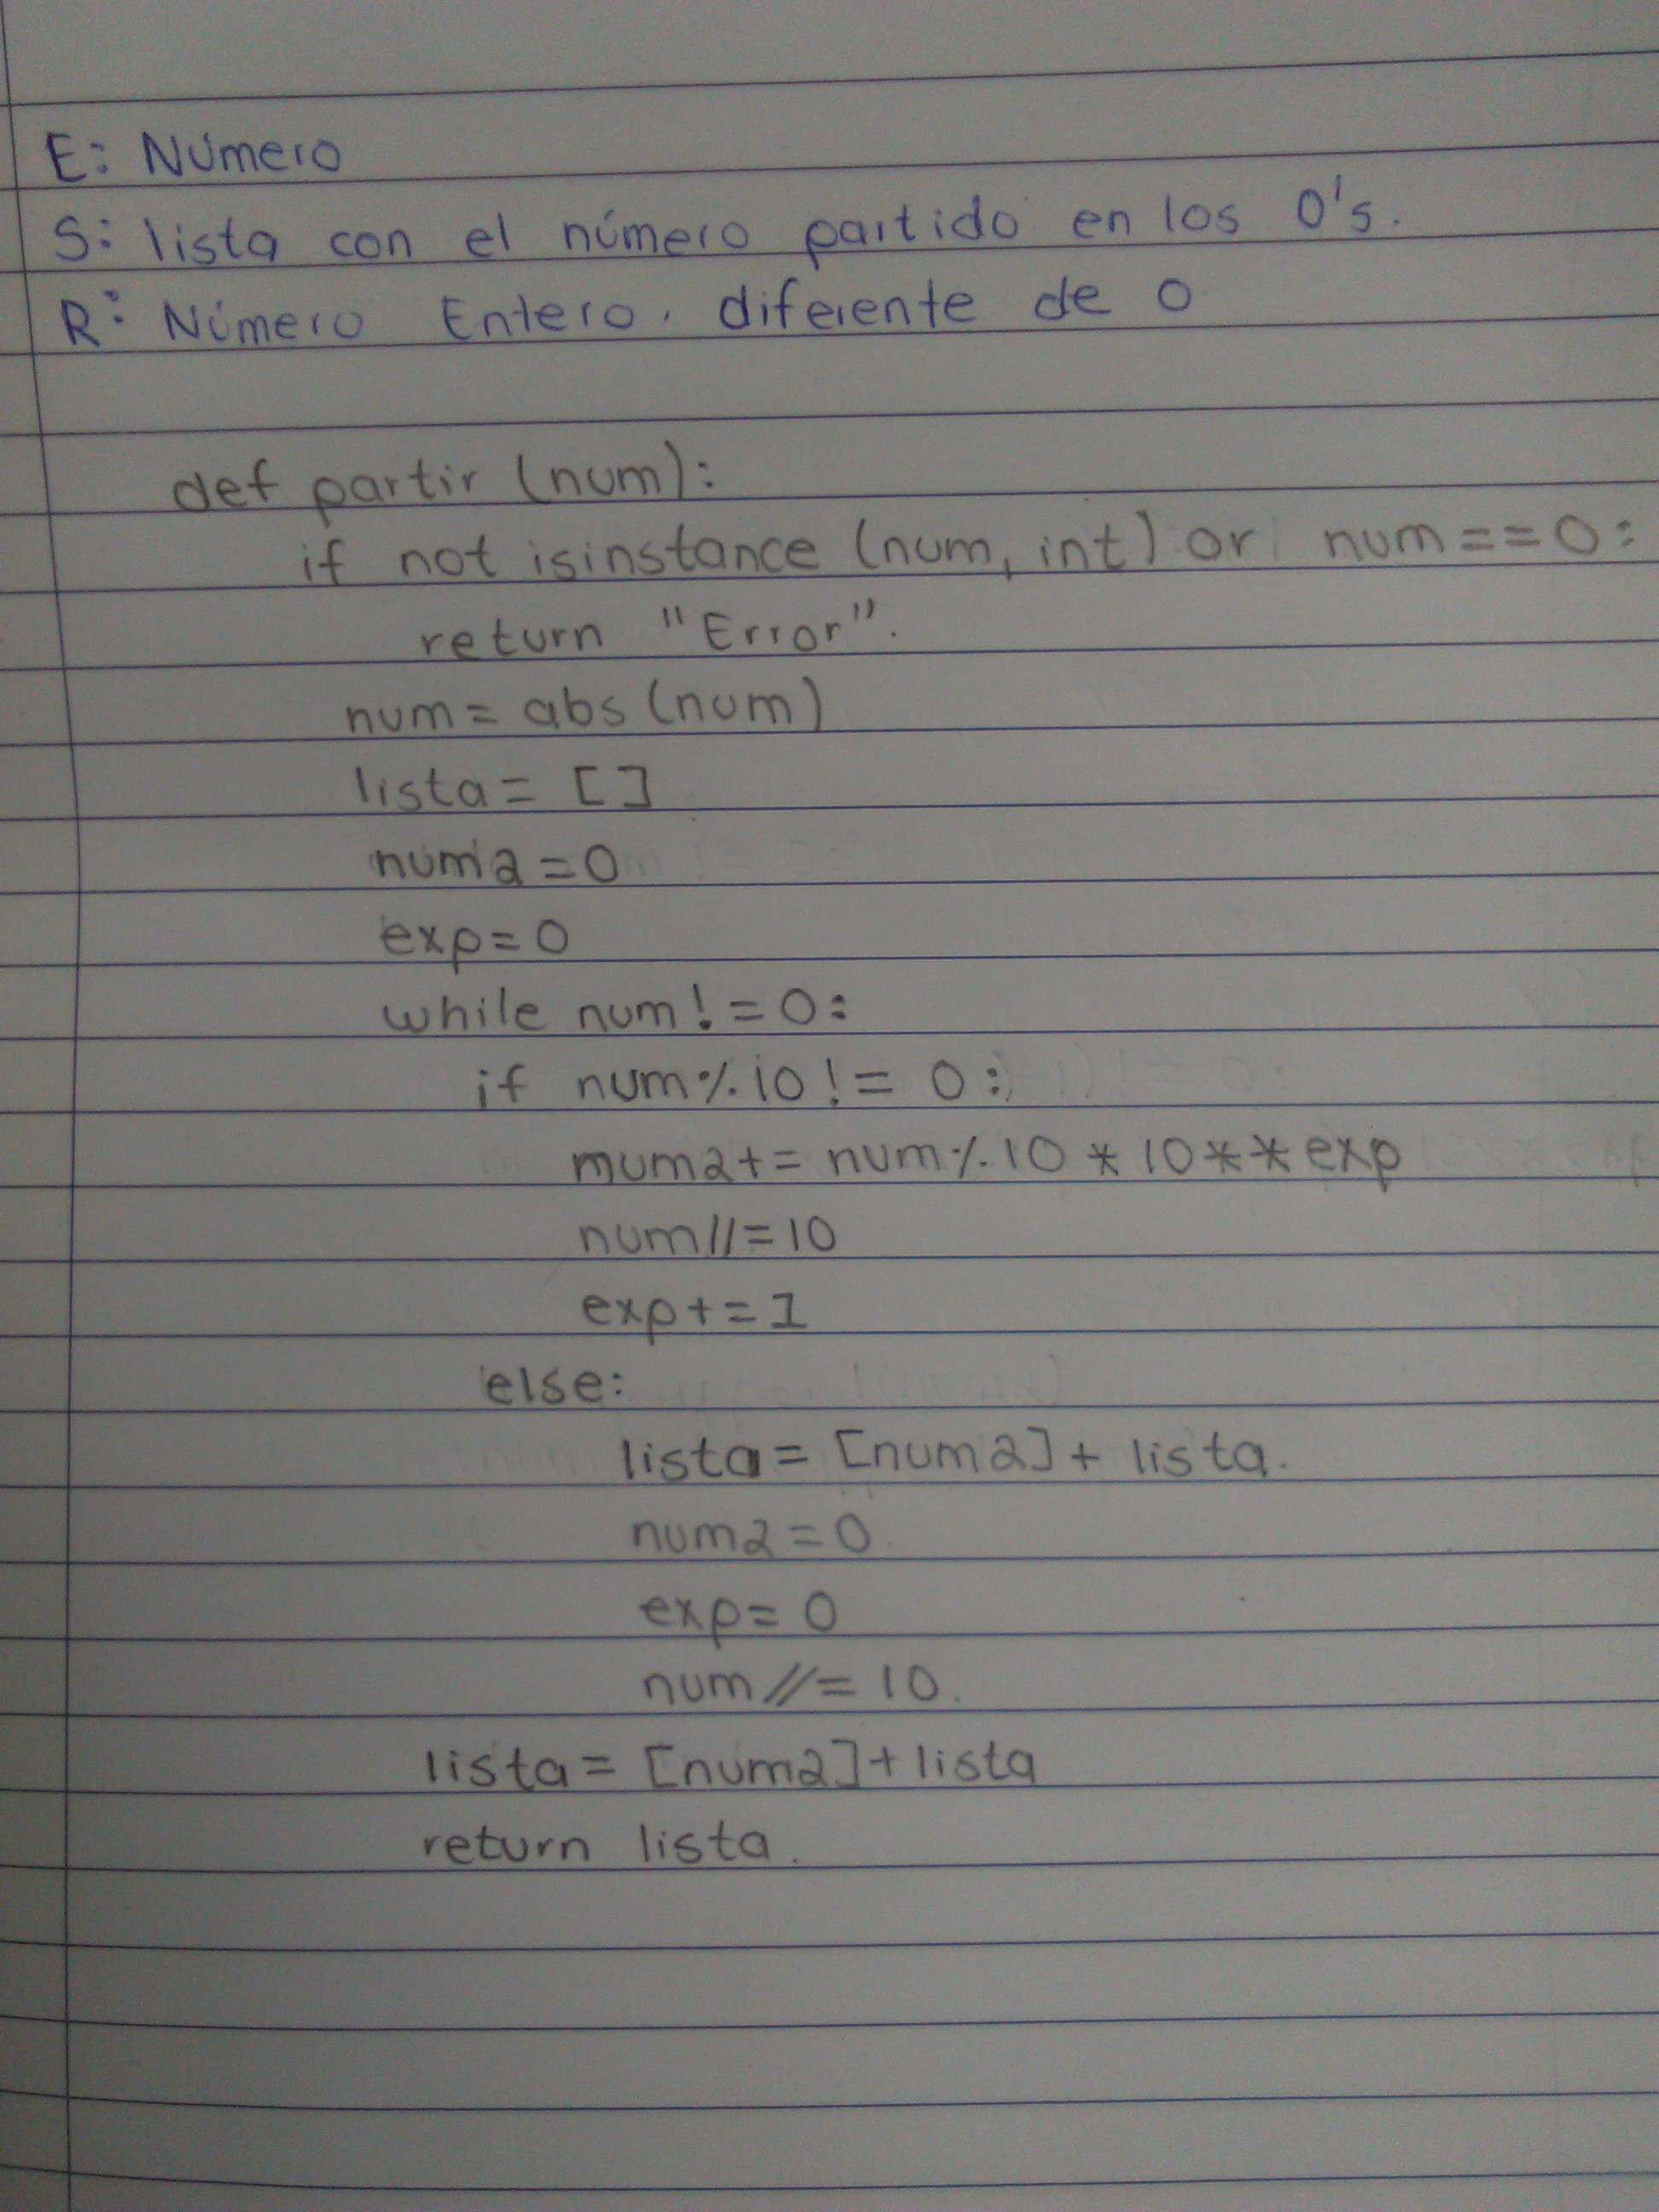 E: Número
S: lista con el número partido en los 0's.
R: Número Entero, diferente de 0
def partir (num):
if not isinstance (num, int) or num == 0:
return "Error".
num = abs (num)
lista = []
num2 = 0
exp = 0
while num != 0:
if num % 10 != 0:
num2 += num % 10 * 10 ** exp
num //= 10
exp += 1
else:
lista = [num2] + lista.
num2 = 0
exp = 0
num //= 10.
lista = [num2] + lista
return lista.